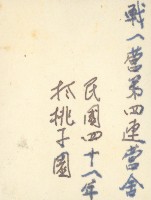 戰一營第四連營舍
民國四十八年
於桃子園